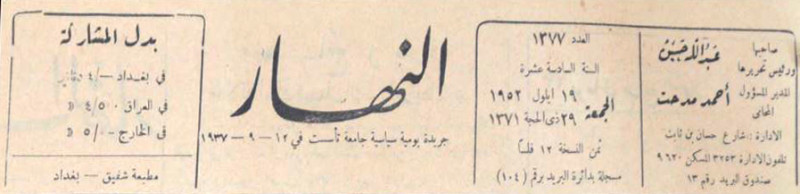 صاحبها ورئيس تحريرها
عبد الله حسن
المدير المسؤول المحامي
أحمد مدحت
الادارة : شارع حسان بن ثابت
تلفون الادارة ٣٢٥٣ المسكن ٩٦٢٠
صندوق البريد رقم ١٣
العدد ١٣٧٧
السنة السادسة عشرة
الجمعة
١٩ ايلول ١٩٥٢
٢٩ ذي الحجة ١٣٧١
ثمن النسخة ١٢ فلساً
مسجلة بدائرة البريد برقم (١٠٤)
النهار
جريدة يومية سياسية جامعة تأسست في ١٢ - ٩ - ١٩٣٧
بدل المشاركة
في بغداد -/٤ دنانير
في العراق ٤/٥٠٠ »
في الخارج -/٥ »
مطبعة شفيق - بغداد